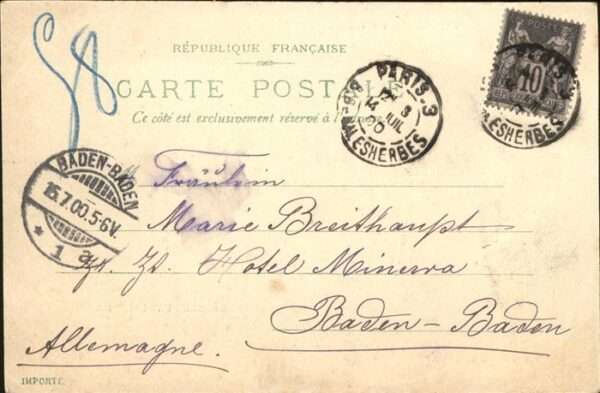 98
RÉPUBLIQUE FRANÇAISE
CARTE POSTALE
Ce côté est exclusivement réservé à l'
PARIS-3
12 3
14 JUIL
00
MALESHERBES
PARIS-3
10
MALESHERBES
BADEN-BADEN
15.7.00.5-6V.
* 1 a
Fräulein
Marie Breithaupt
Zt. Hotel Minerva
Baden-Baden
Allemagne.
IMPORTÉ.